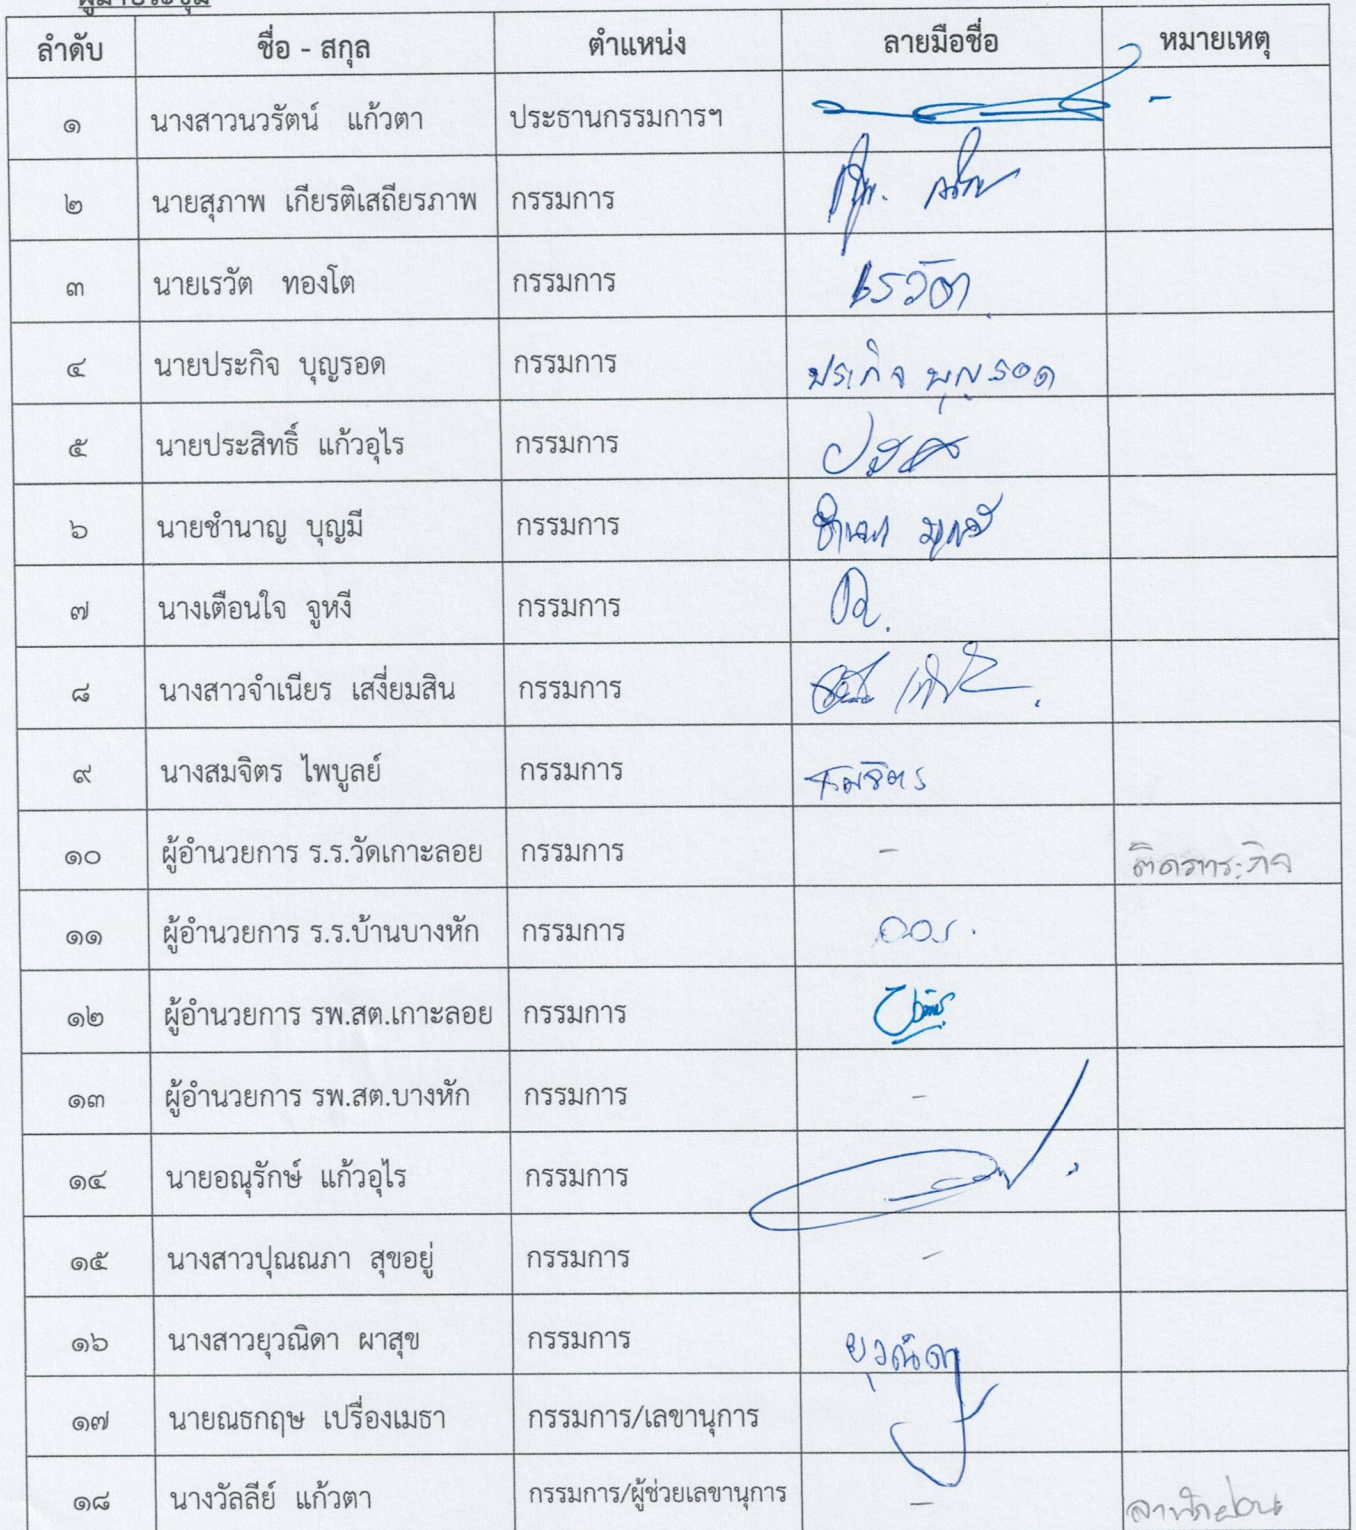 ผู้มาประชุม
ลำดับ ชื่อ - สกุล ตำแหน่ง ลายมือชื่อ หมายเหตุ
๑ นางสาวนวรัตน์ แก้วตา ประธานกรรมการฯ -
๒ นายสุภาพ เกียรติเสถียรภาพ กรรมการ
๓ นายเรวัต ทองโต กรรมการ เรวัต
๔ นายประกิจ บุญรอด กรรมการ ประกิจ บุญรอด
๕ นายประสิทธิ์ แก้วอุไร กรรมการ
๖ นายชำนาญ บุญมี กรรมการ ชำนาญ บุญมี
๗ นางเตือนใจ จูหงี กรรมการ
๘ นางสาวจำเนียร เสงี่ยมสิน กรรมการ
๙ นางสมจิตร ไพบูลย์ กรรมการ สมจิตร
๑๐ ผู้อำนวยการ ร.ร.วัดเกาะลอย กรรมการ - ติดภาระกิจ
๑๑ ผู้อำนวยการ ร.ร.บ้านบางหัก กรรมการ
๑๒ ผู้อำนวยการ รพ.สต.เกาะลอย กรรมการ
๑๓ ผู้อำนวยการ รพ.สต.บางหัก กรรมการ -
๑๔ นายอณุรักษ์ แก้วอุไร กรรมการ
๑๕ นางสาวปุณณภา สุขอยู่ กรรมการ -
๑๖ นางสาวยุวณิดา ผาสุข กรรมการ ยุวณิดา
๑๗ นายณธกฤษ เปรื่องเมธา กรรมการ/เลขานุการ
๑๘ นางวัลลีย์ แก้วตา กรรมการ/ผู้ช่วยเลขานุการ - ลาพักผ่อน